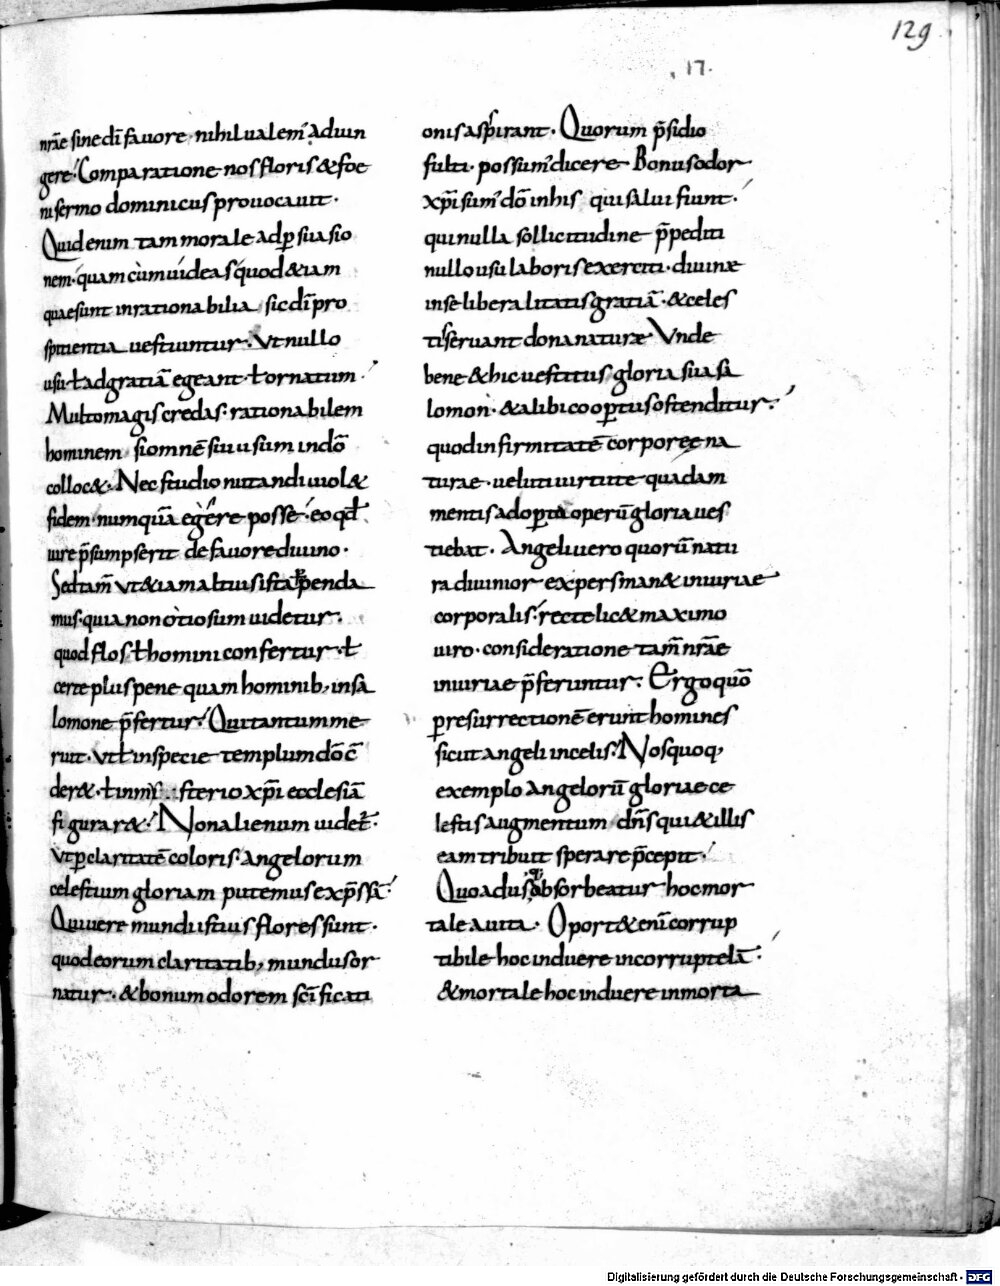 129
17.
nr̄ae sine dī fauore nihil ualem' Adiun
gere; Comparatione nos floris & foe
ni sermo dominicus prouocauit.
Quid enim tam morale ad p̱suasio
nem quam cum uideas quod & iam
quae sunt inrationabilia sic dī pro
spitientia uestiuntur. Ut nullo
usu ł ad gratiā egeant. ł ornatum
Multo magis credas rationabilem
hominem si omnē siuu usum in dō
colloc&. Nec studio nutandi uiol&
fidem numquā egere posse. eo qđ
iure p̄sumpserit de fauore diuino.
Sed tam̄ ut & iam altius ista p̱penda
mus. quia non otiosum uidetur.
quod flos ł homini confertur. ł
certe plus pene quam hominib; in sa
lomone p̄fertur. Qui tantum me
ruit. Ut ł in specie templum dō c̄
der&. ł in mysterio xp̄i ecclesiā
figurar&. Non alienum uidet̄.
Ut p̱ claritatē coloris. Angelorum
celestium gloriam putemus exp̄ssā.
Qui uere mundi istius flores sunt.
quod eorum claritatib; mundus or
natur. & bonum odorem sc̄ificati
onis aspirant. Quorum p̄sidio
fulti. possum' dicere Bonus odor
xp̄i sum' dō in his qui salui fiunt.
qui nulla sollicitudine p̄pediti
nullo usu laboris exerciti. diuinæ
in se liberalitatis gratiā. & celes
tis seruant dona naturæ Unde
bene & hic uestitus gloria sua sa
lomon. & alibi coop̱tus ostenditur.
quod infirmitatē corporeæ na
turae. ueluti uirtute quadam
mentis adop̱ta operū gloria ues
tiebat. Angeli uero quorū natu
ra diuinior expers man& iniuriae
corporalis. recte lic& maximo
uiro. consideratione tam̄ nr̄ae
iniuriae p̄feruntur. Ergo quō
p̱ resurrectionē erunt homines
sicut angeli in celis. Nos quoq;
exemplo Angelorū gloriae ce
lestis augmentum dn̄s qui & illis
eam tribuit sperare p̄cepit.
Quoadusq; absorbeatur hoc mor
tale a uita. Oport& enī corrup
tibile hoc induere incorruptelā.
& mortale hoc induere inmorta
Digitalisierung gefördert durch die Deutsche Forschungsgemeinschaft - DFG